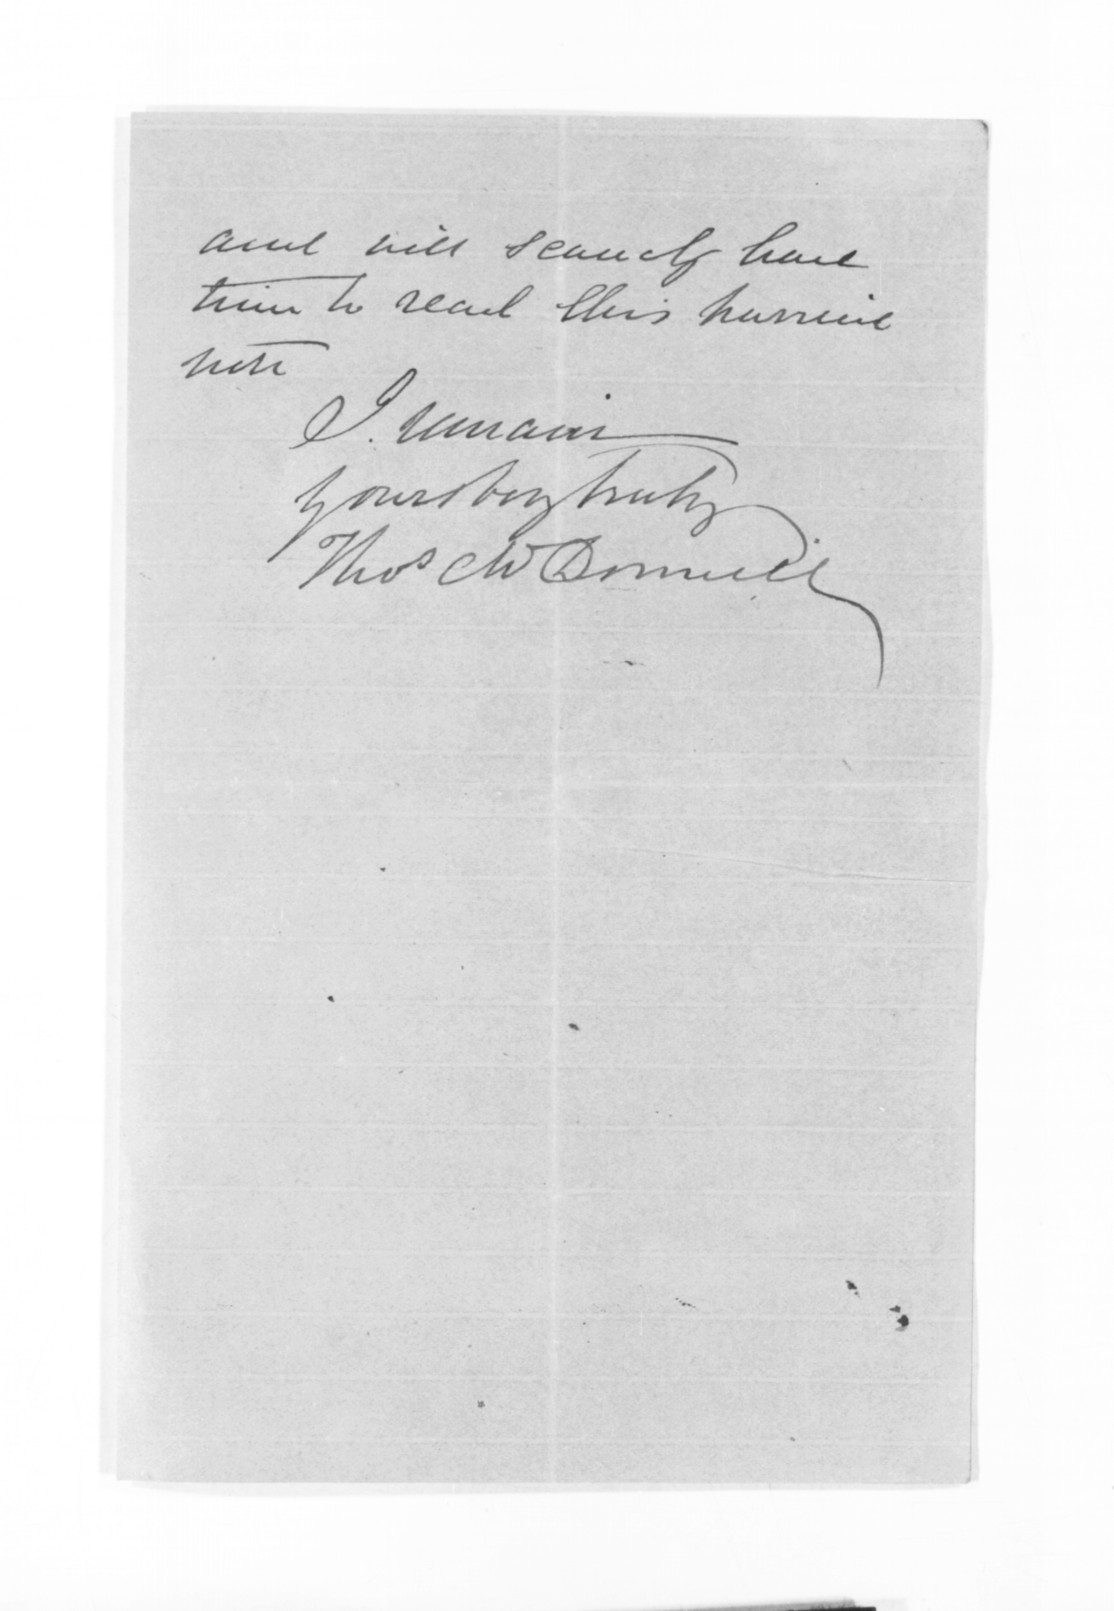 and will scarcely have
time to read this hurried
note
I remain
Yours very truly
Thos McDonnell